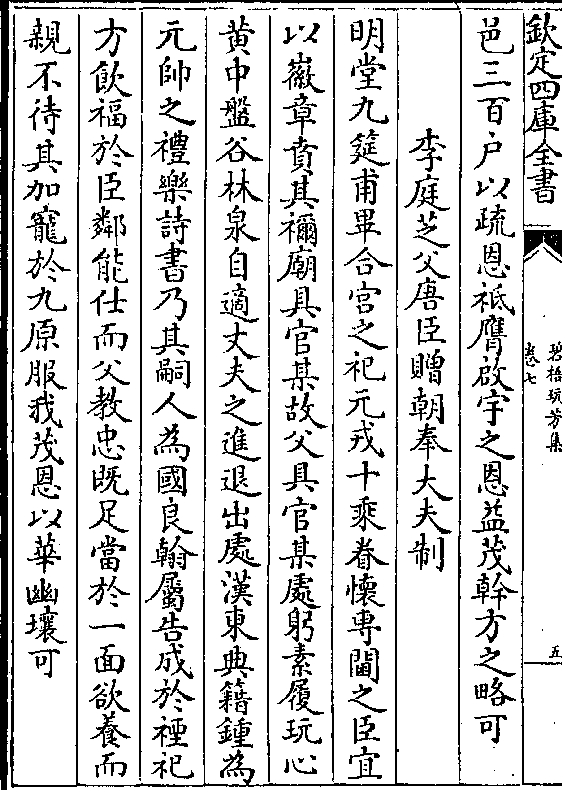 欽定四庫全書
碧梧玩芳集
卷七
五
邑三百户以疏恩祗膺啟宇之恩益茂幹方之略可
李庭芝父唐臣贈朝奉大夫制
明堂九筵甫畢合宮之祀元戎十乘眷懷専閫之臣宜
以徽章賁其禰廟具官某故父具官某處躬素履玩心
黄中盤谷林泉自適丈夫之進退出處漢東典籍鍾為
元帥之禮樂詩書乃其嗣人為國良翰屬告成於禋祀
方飲福於臣鄰能仕而父教忠既足當於一面欲養而
親不待其加寵於九原服我茂恩以華幽壤可